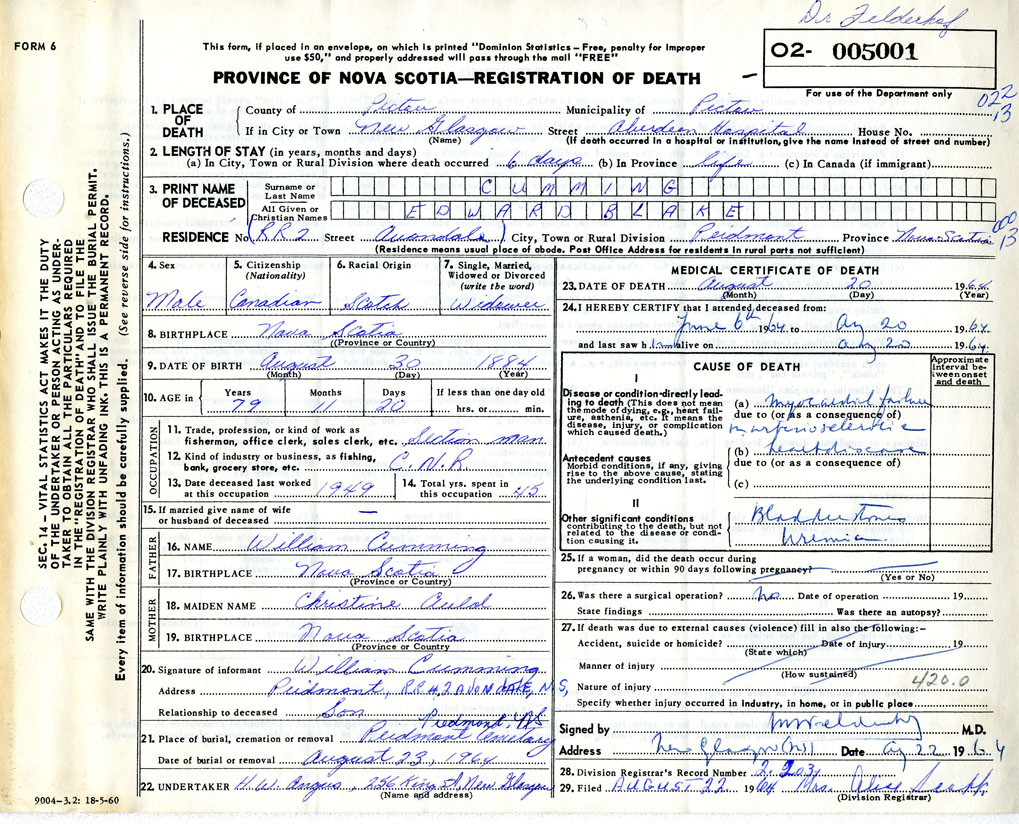 Dr Felderhof
FORM 6
This form, if placed in an envelope, on which is printed "Dominion Statistics – Free, penalty for improper
use $50," and properly addressed will pass through the mail "FREE"
02- 005001
PROVINCE OF NOVA SCOTIA—REGISTRATION OF DEATH
For use of the Department only
022
13
1. PLACE OF DEATH
County of Pictou Municipality of Pictou
If in City or Town New Glasgow Street Aberdeen Hospital House No.
(Name) (If death occurred in a hospital or institution, give the name instead of street and number)
2. LENGTH OF STAY (in years, months and days)
(a) In City, Town or Rural Division where death occurred 6 days (b) In Province life (c) In Canada (if immigrant)
3. PRINT NAME OF DECEASED
Surname or Last Name CUMMING
All Given or Christian Names EDWARD BLAKE
RESIDENCE No. (RR2 Street Avondale) City, Town or Rural Division Peidmont Province Nova Scotia
13
(Residence means usual place of abode. Post Office Address for residents in rural parts not sufficient)
4. Sex
Male
5. Citizenship
(Nationality)
Canadian
6. Racial Origin
Scotch
7. Single, Married,
Widowed or Divorced
(write the word)
Widower
8. BIRTHPLACE Nova Scotia
(Province or Country)
9. DATE OF BIRTH August 30 1884
(Month) (Day) (Year)
10. AGE in
Years Months Days If less than one day old
79 11 20 hrs. or min.
OCCUPATION
11. Trade, profession, or kind of work as
fisherman, office clerk, sales clerk, etc. Section man
12. Kind of industry or business, as fishing,
bank, grocery store, etc. C.N.R.
13. Date deceased last worked
at this occupation 1949
14. Total yrs. spent in
this occupation 45
15. If married give name of wife
or husband of deceased —
FATHER
16. NAME William Cumming
17. BIRTHPLACE Nova Scotia
(Province or Country)
MOTHER
18. MAIDEN NAME Christine Auld
19. BIRTHPLACE Nova Scotia
(Province or Country)
20. Signature of informant William Cumming
Address Peidmont, R.R.#2 AVONDALE, N.S,
Relationship to deceased Son
Piedmont, NS
21. Place of burial, cremation or removal Peidmont Cemetary
Date of burial or removal August 23, 1964
22. UNDERTAKER H.W. Angus, 256 King St, New Glasgow
(Name and address)
9004–3.2: 18-5-60
MEDICAL CERTIFICATE OF DEATH
23. DATE OF DEATH August 20 1964
(Month) (Day) (Year)
24. I HEREBY CERTIFY that I attended deceased from:
June 6th 1964 to Aug 20 1964
and last saw him alive on Aug 20 1964
CAUSE OF DEATH
Approximate
interval be-
tween onset
and death
I
Disease or condition directly lead-
ing to death (This does not mean
the mode of dying, e.g., heart fail-
ure, asthenia, etc. It means the
disease, injury, or complication
which caused death.)
(a) myocardial failure
due to (or as a consequence of)
in arteriosclerotic
Antecedent causes
Morbid conditions, if any, giving
rise to the above cause, stating
the underlying condition last.
(b) heart disease
due to (or as a consequence of)
(c)
II
Other significant conditions
contributing to the death, but not
related to the disease or condi-
tion causing it.
Bladder stones
Uremia
25. If a woman, did the death occur during
pregnancy or within 90 days following pregnancy?
(Yes or No)
26. Was there a surgical operation? No Date of operation 19
State findings Was there an autopsy?
27. If death was due to external causes (violence) fill in also the following:–
Accident, suicide or homicide? Date of injury 19
(State which)
Manner of injury
(How sustained)
420.0
Nature of injury
Specify whether injury occurred in industry, in home, or in public place
Signed by M.D.
Address New Glasgow (NS) Date Aug 22 1964
28. Division Registrar's Record Number 2203
29. Filed AUGUST 22 1964 Mrs. Alice
(Division Registrar)
SEC. 14 – VITAL STATISTICS ACT MAKES IT THE DUTY
OF THE UNDERTAKER OR PERSON ACTING AS UNDER-
TAKER TO OBTAIN ALL THE PARTICULARS REQUIRED
IN THE "REGISTRATION OF DEATH" AND TO FILE THE
SAME WITH THE DIVISION REGISTRAR WHO SHALL ISSUE THE BURIAL PERMIT.
WRITE PLAINLY WITH UNFADING INK. THIS IS A PERMANENT RECORD.
Every item of information should be carefully supplied. (See reverse side for instructions.)